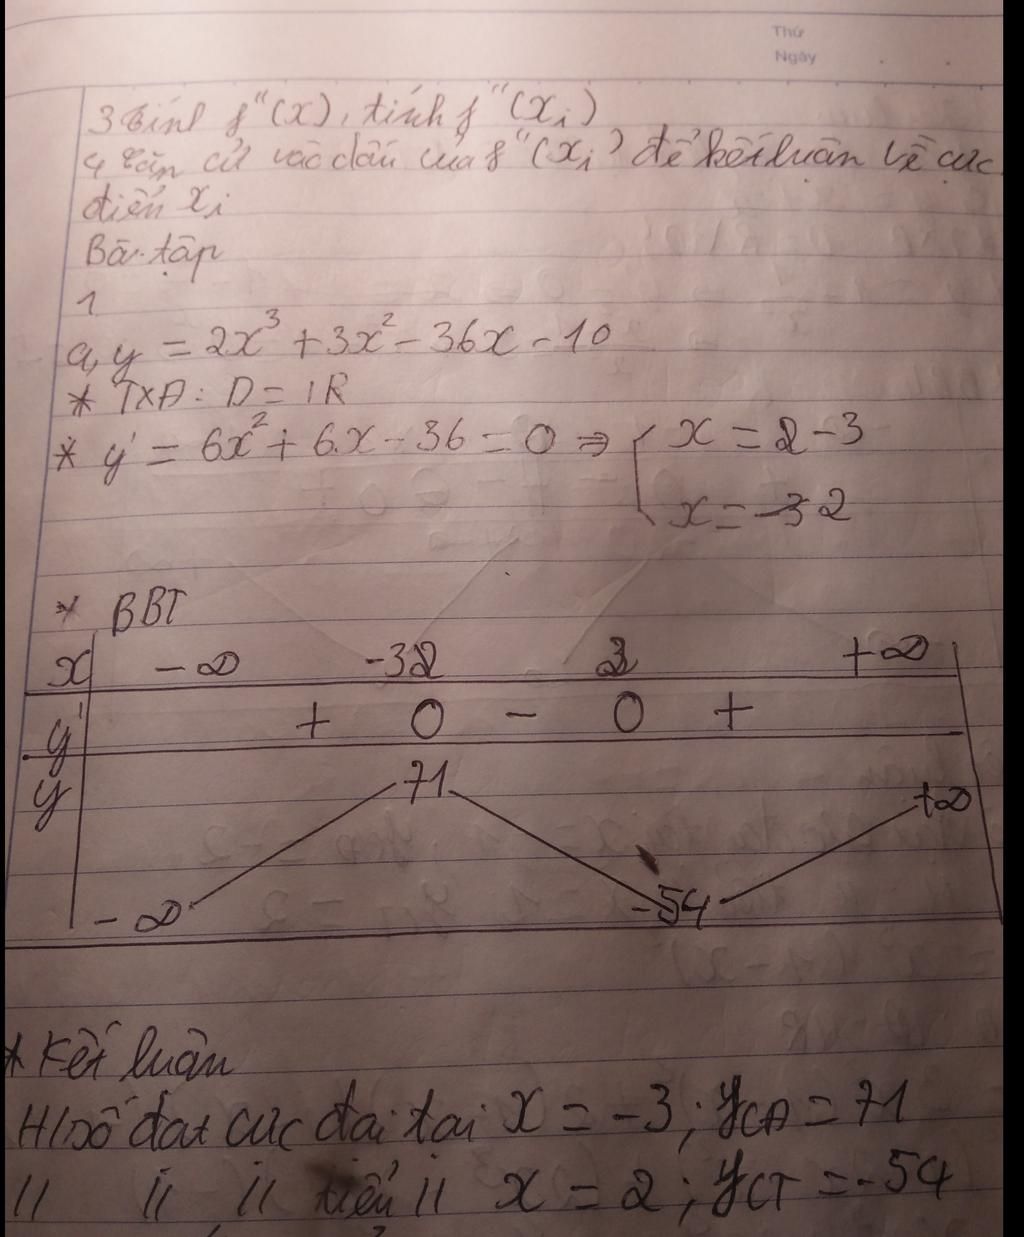 Thứ
Ngày
3 Tính f"(x), tính f"(xi)
4 Căn cứ vào dấu của f"(xi) để kết luận về cực
điểm xi
Bài tập
1
a, y = 2x³ + 3x² - 36x - 10
* TXĐ: D = IR
* y' = 6x² + 6x - 36 = 0 ⇒ { x = 2 -3
x = -3 2
* BBT
x -∞ -3 2 2 +∞
y' + 0 - 0 +
y 71 +∞
-∞ -54
* Kết luận
H/số đạt cực đại tại x = -3; yCĐ = 71
// // // tiểu // x = 2; yCT = -54